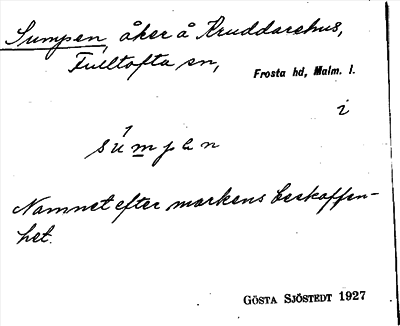 Sumpen, åker å Kruddarehus,
Fulltofta sn,
Frosta hd, Malm. l.
i
súmpen
Namnet efter markens beskaffen-
het.
GÖSTA SJÖSTEDT 1927